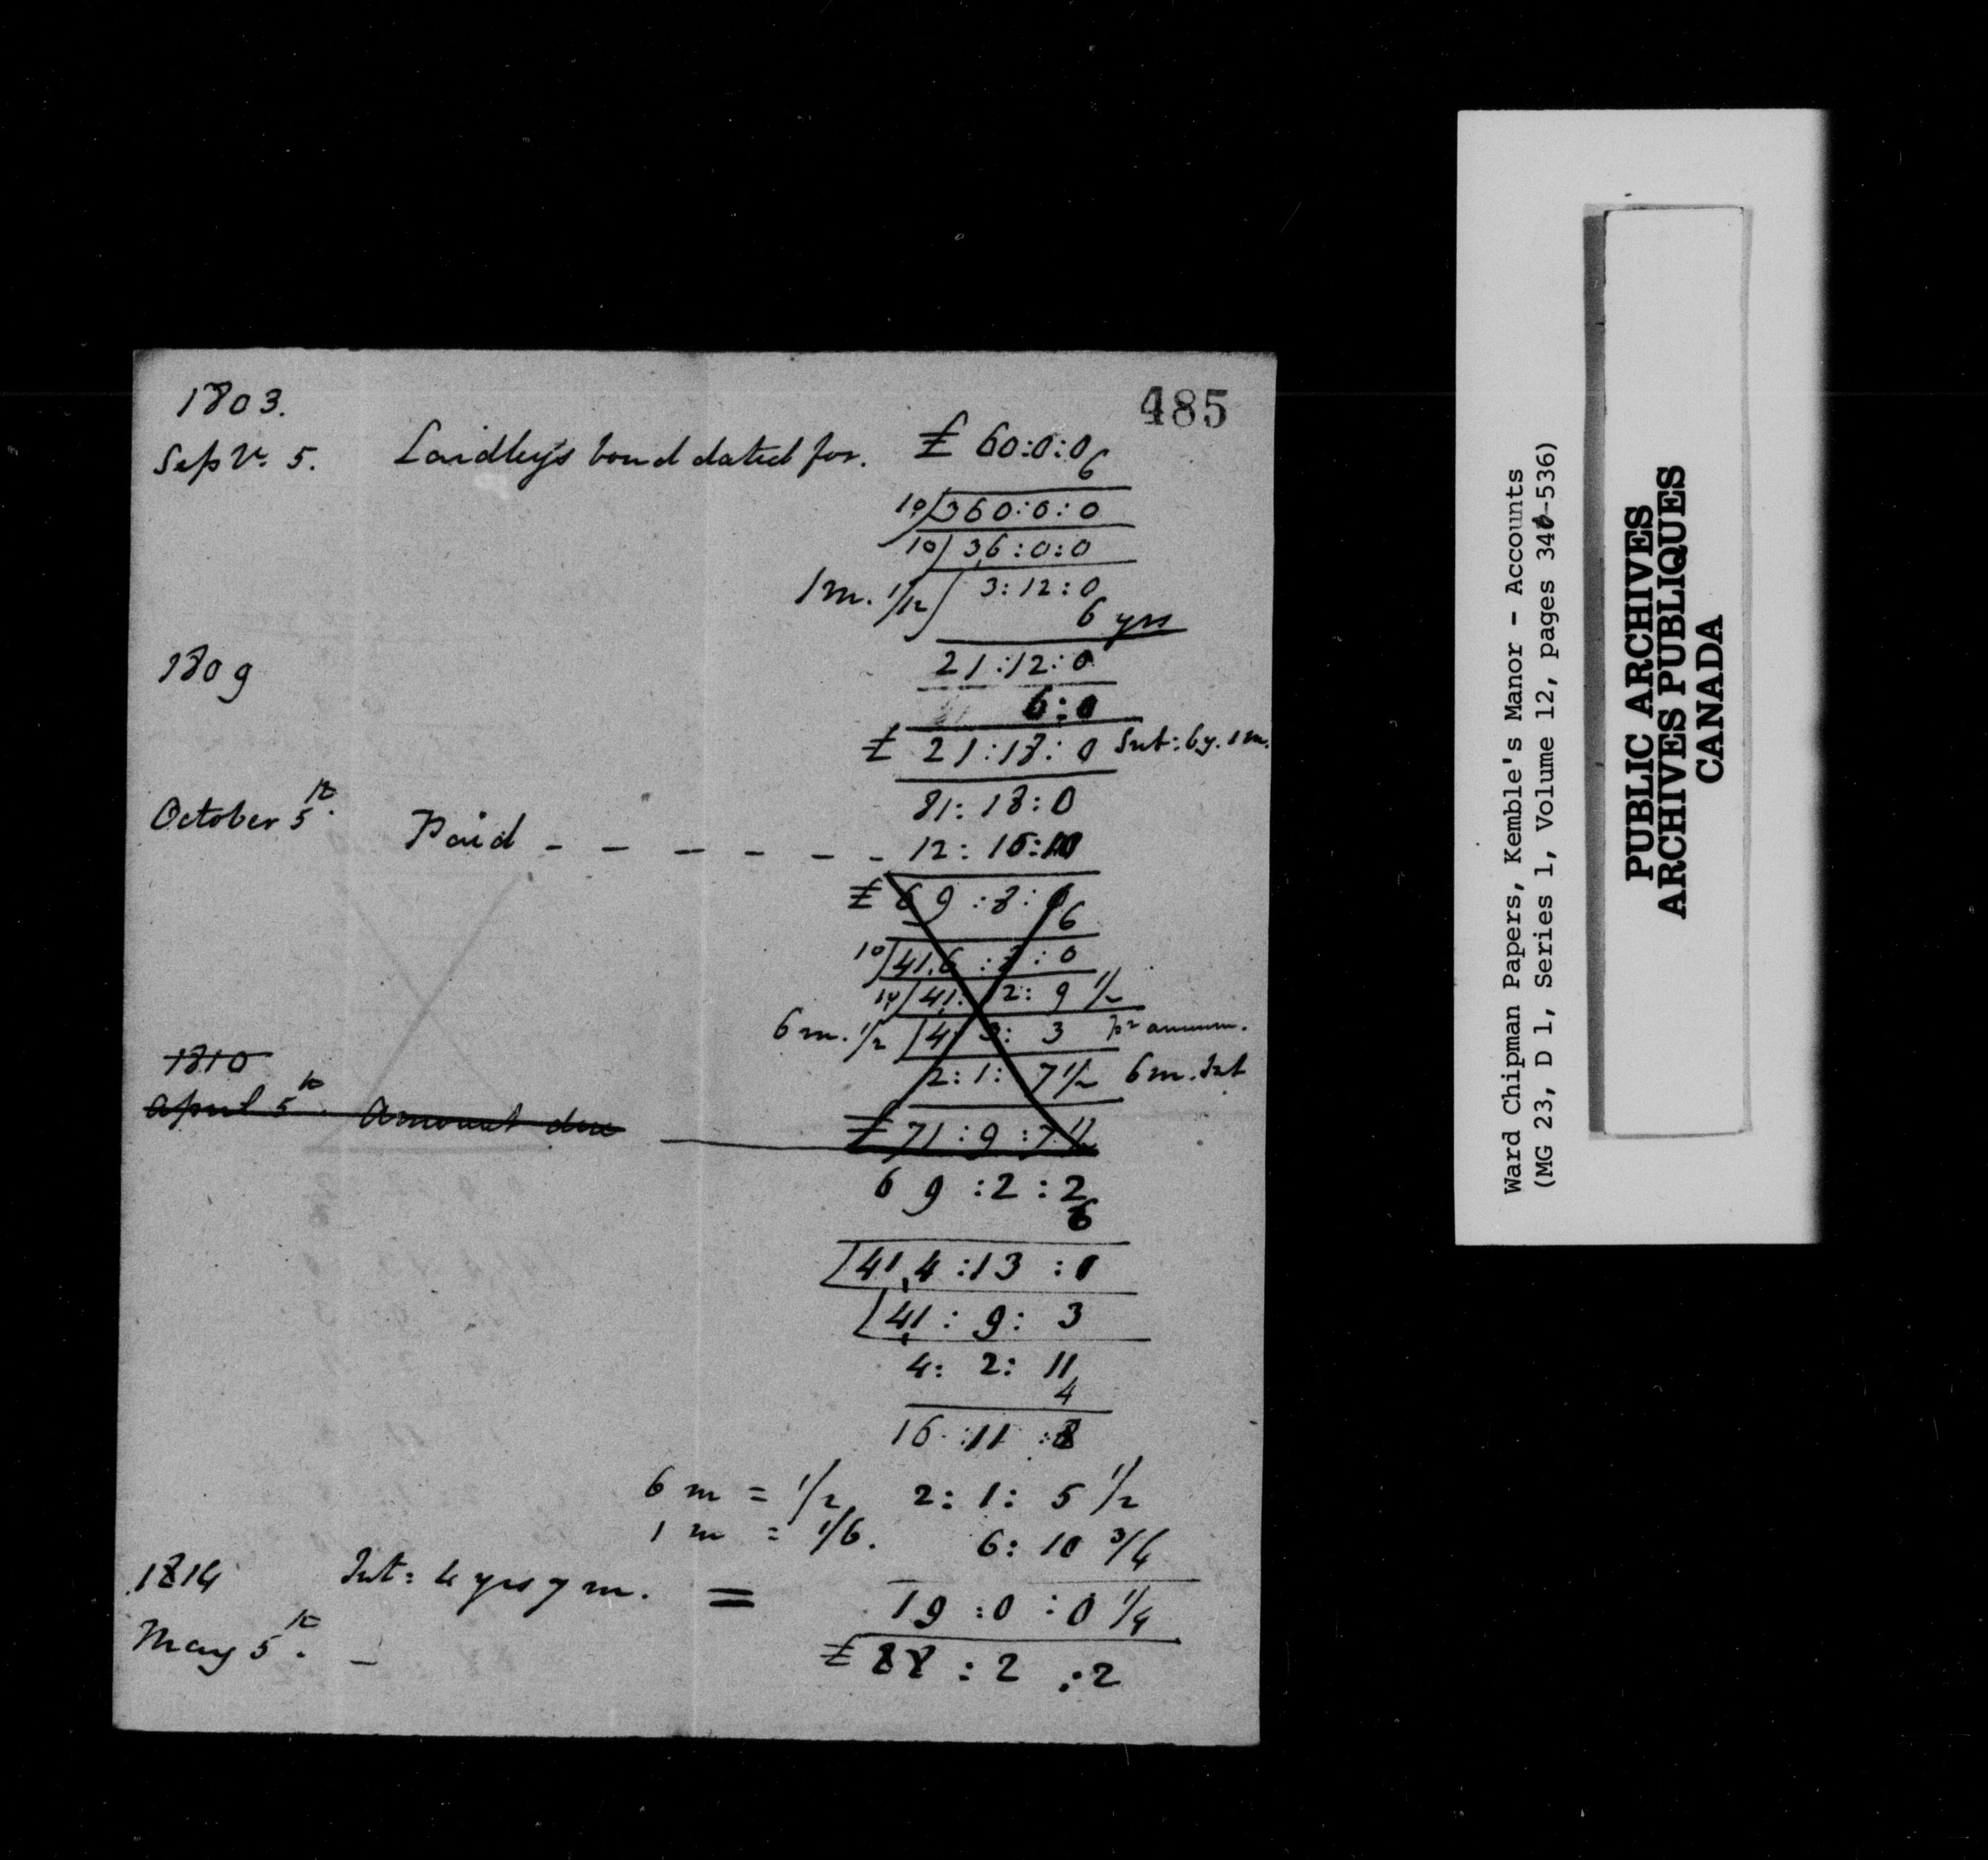 485
1803.
Sepr. 5. Laidley's bond dated for. £ 60:0:0
6
10/360:0:0
10/36:0:0
1 m. 1/12/ 3:12:0
6 yrs
1809
21:12:0
6:0
£ 21:18:0 Int: 6 y. 1 m.
81:18:0
October 5th. Paid - - - - - - 12:15:10
£ 69:8:0
6
10/41,6:8:0
10/41:12:9 1/2
6 m. 1/2 /4:3:3 pr annum.
1810
2:1:7 1/2 6 m. Int
April 5th. Amount due £ 71:9:7 1/2
69:2:2
6
/41,4:13:0
/41:9:3
4:2:11
4
16:11:8
6 m = 1/2 2:1:5 1/2
1 m = 1/6. 6:10 3/4
1814 Int: 4 yrs 7 m. = 19:0:0 1/4
May 5th. - £ 88:2:2
Ward Chipman Papers, Kemble's Manor - Accounts
(MG 23, D 1, Series 1, Volume 12, pages 346-536)
PUBLIC ARCHIVES
ARCHIVES PUBLIQUES
CANADA